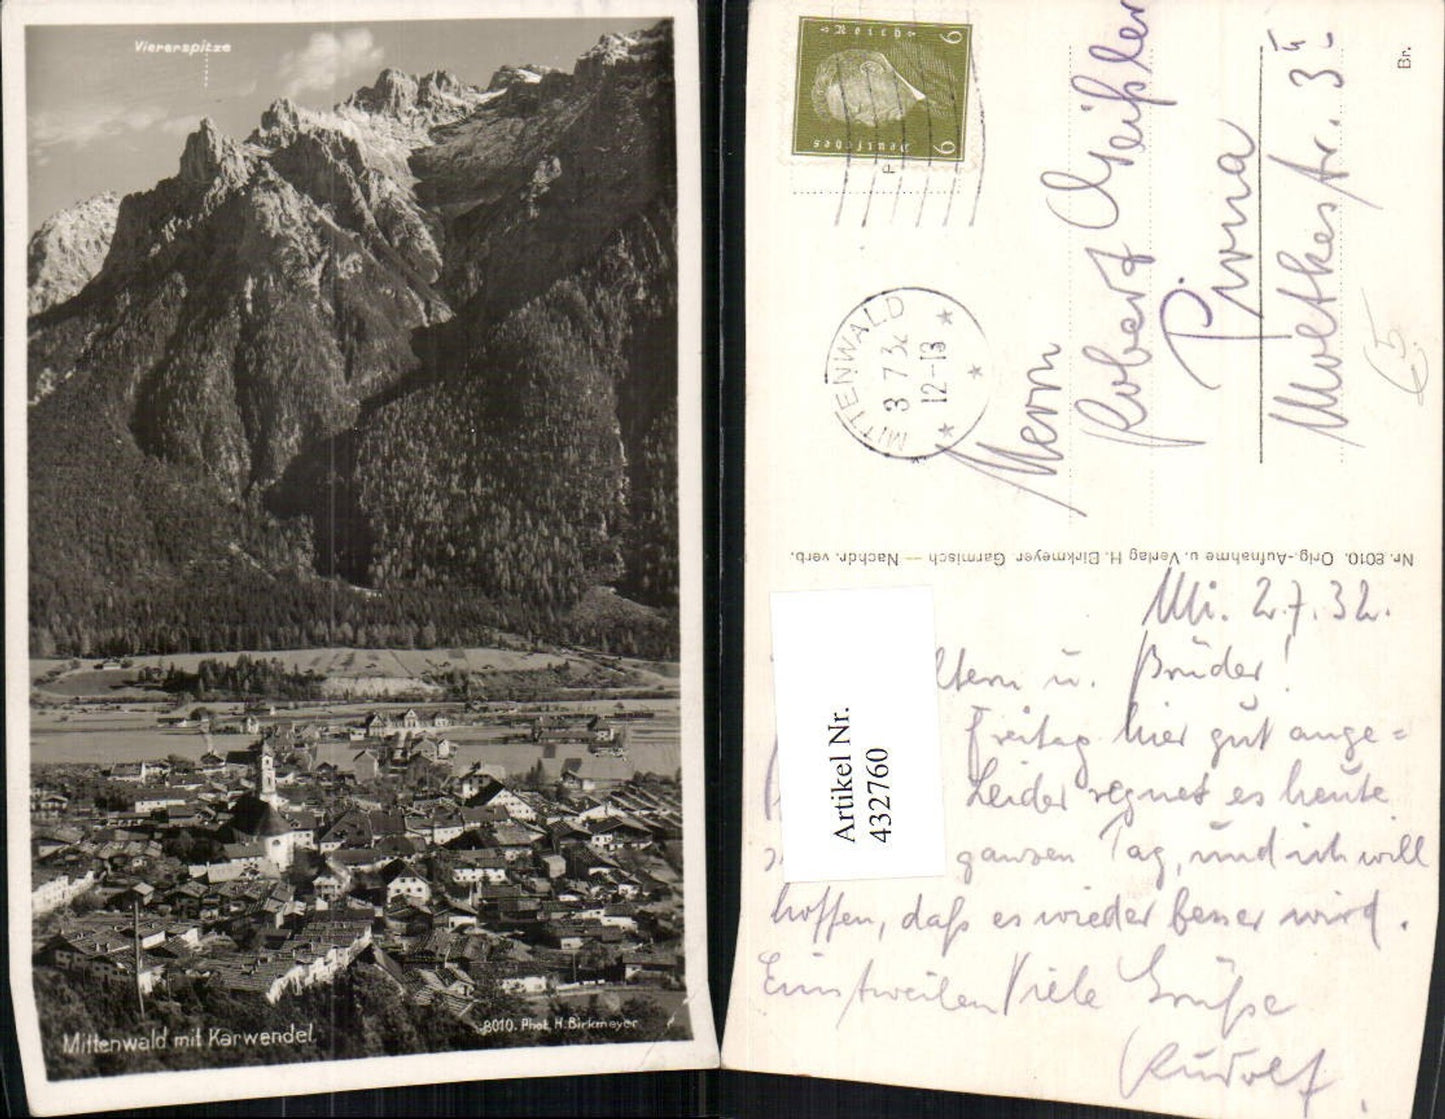 Viererspitze
Mittenwald mit Karwendel
8010. Phot. H. Birkmeyer
Deutsches Reich
6 6
MITTENWALD
3 7 32
12-13
Herrn
Robert
Pirna
Moltkestr. 3
Br.
65
Nr. 8010. Orig.-Aufnahme u. Verlag H. Birkmeyer Garmisch — Nachdr. verb.
Artikel Nr.
432760
Mi. 2.7.32.
ltern u. Brüder!
Freitag hier gut ange=
Leider regnet es heute
ganzen Tag, und ich will
hoffen, daß es wieder besser wird.
Einstweilen Viele Grüße
Rudolf.